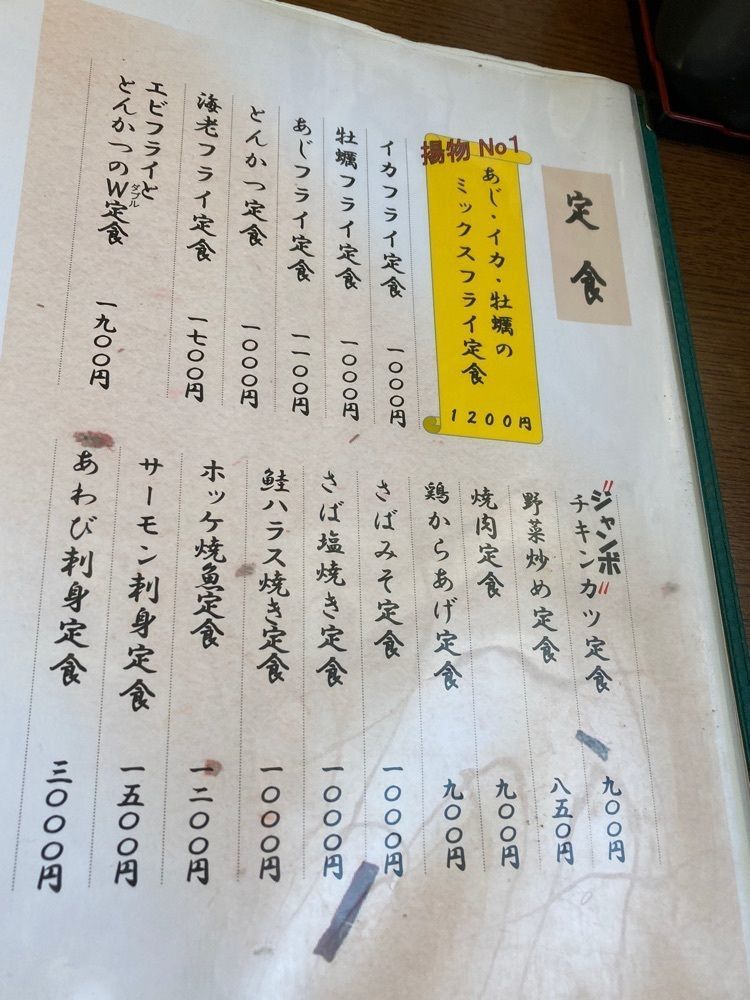 定食
揚物 No1
あじ・イカ・牡蠣の
ミックスフライ定食
1200円
イカフライ定食 一〇〇〇円
牡蠣フライ定食 一〇〇〇円
あじフライ定食 一一〇〇円
とんかつ定食 一〇〇〇円
海老フライ定食 一七〇〇円
エビフライと
とんかつのW定食 一九〇〇円
ダブル
"ジャンボ"
チキンカツ定食 九〇〇円
野菜炒め定食 八五〇円
焼肉定食 九〇〇円
鶏からあげ定食 九〇〇円
さばみそ定食 一〇〇〇円
さば塩焼き定食 一〇〇〇円
鮭ハラス焼き定食 一〇〇〇円
ホッケ焼魚定食 一二〇〇円
サーモン刺身定食 一五〇〇円
あわび刺身定食 三〇〇〇円